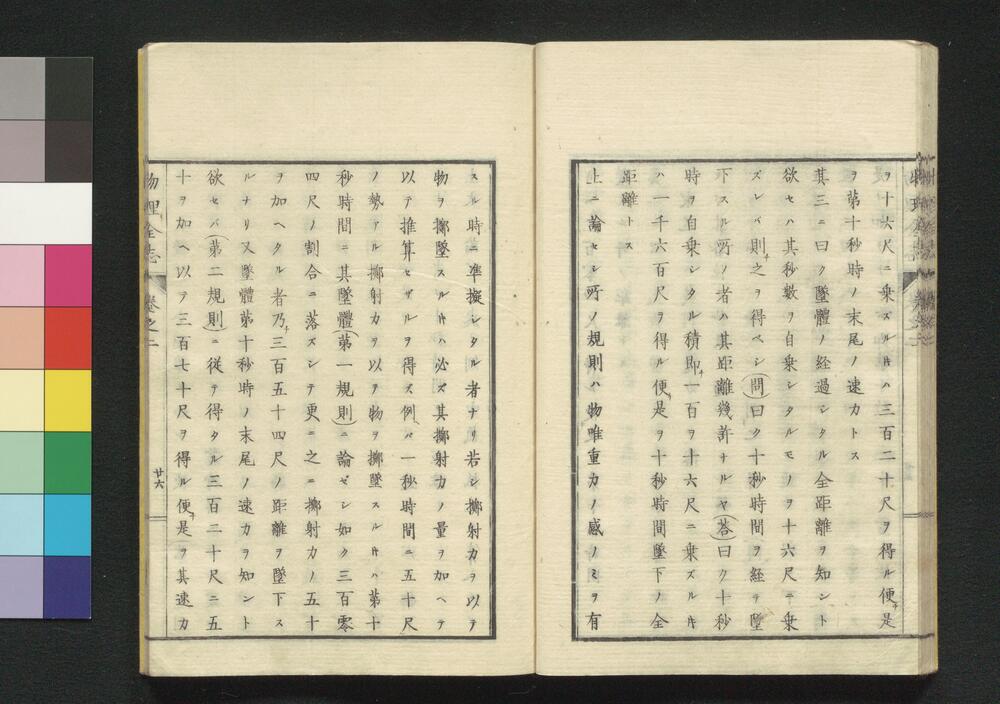 ヲ十六尺ニ乗ズルキハ三百二十尺ヲ得ル便チ是
ヲ第十秒時ノ末尾ノ速力トス
其三ニ曰ク墜體ノ経過シタル全距離ヲ知ント
欲セハ其秒數ヲ自乗シタルモノヲ十六尺ニ乗
ズレバ則チ之ヲ得ベシ(問)曰ク十秒時間ヲ経テ墜
下スル所ノ者ハ其距離幾許ナルヤ(答)曰ク十秒
時ヲ自乗シタル積即チ一百ヲ十六尺ニ乗ズルキ
ハ一千六百尺ヲ得ル便チ是ヲ十秒時間墜下ノ全
距離トス
上ニ論セシ所ノ規則ハ物唯重力ノ感ノミヲ有
スル時ニ準擬シタル者ナリ若シ擲射力ヲ以テ
物ヲ擲墜スルキハ必ズ其擲射力ノ量ヲ加ヘテ
以テ推算セザルヲ得ス例ヘバ一秒時間ニ五十尺
ノ勢アル擲射力ヲ以テ物ヲ擲墜スルキハ第十
秒時間ニ其墜體(第一規則)ニ論ゼシ如ク三百零
四尺ノ割合ニ落ズシテ更ニ之ニ擲射力ノ五十
ヲ加ヘタル者乃チ三百五十四尺ノ距離ヲ墜下ス
ルナリ又墜體第十秒時ノ末尾ノ速力ヲ知ント
欲セバ(第二規則)ニ従テ得タル三百二十尺ニ五
十ヲ加ヘ以テ三百七十尺ヲ得ル便チ是ヲ其速力
物理全志
卷之二
廿六